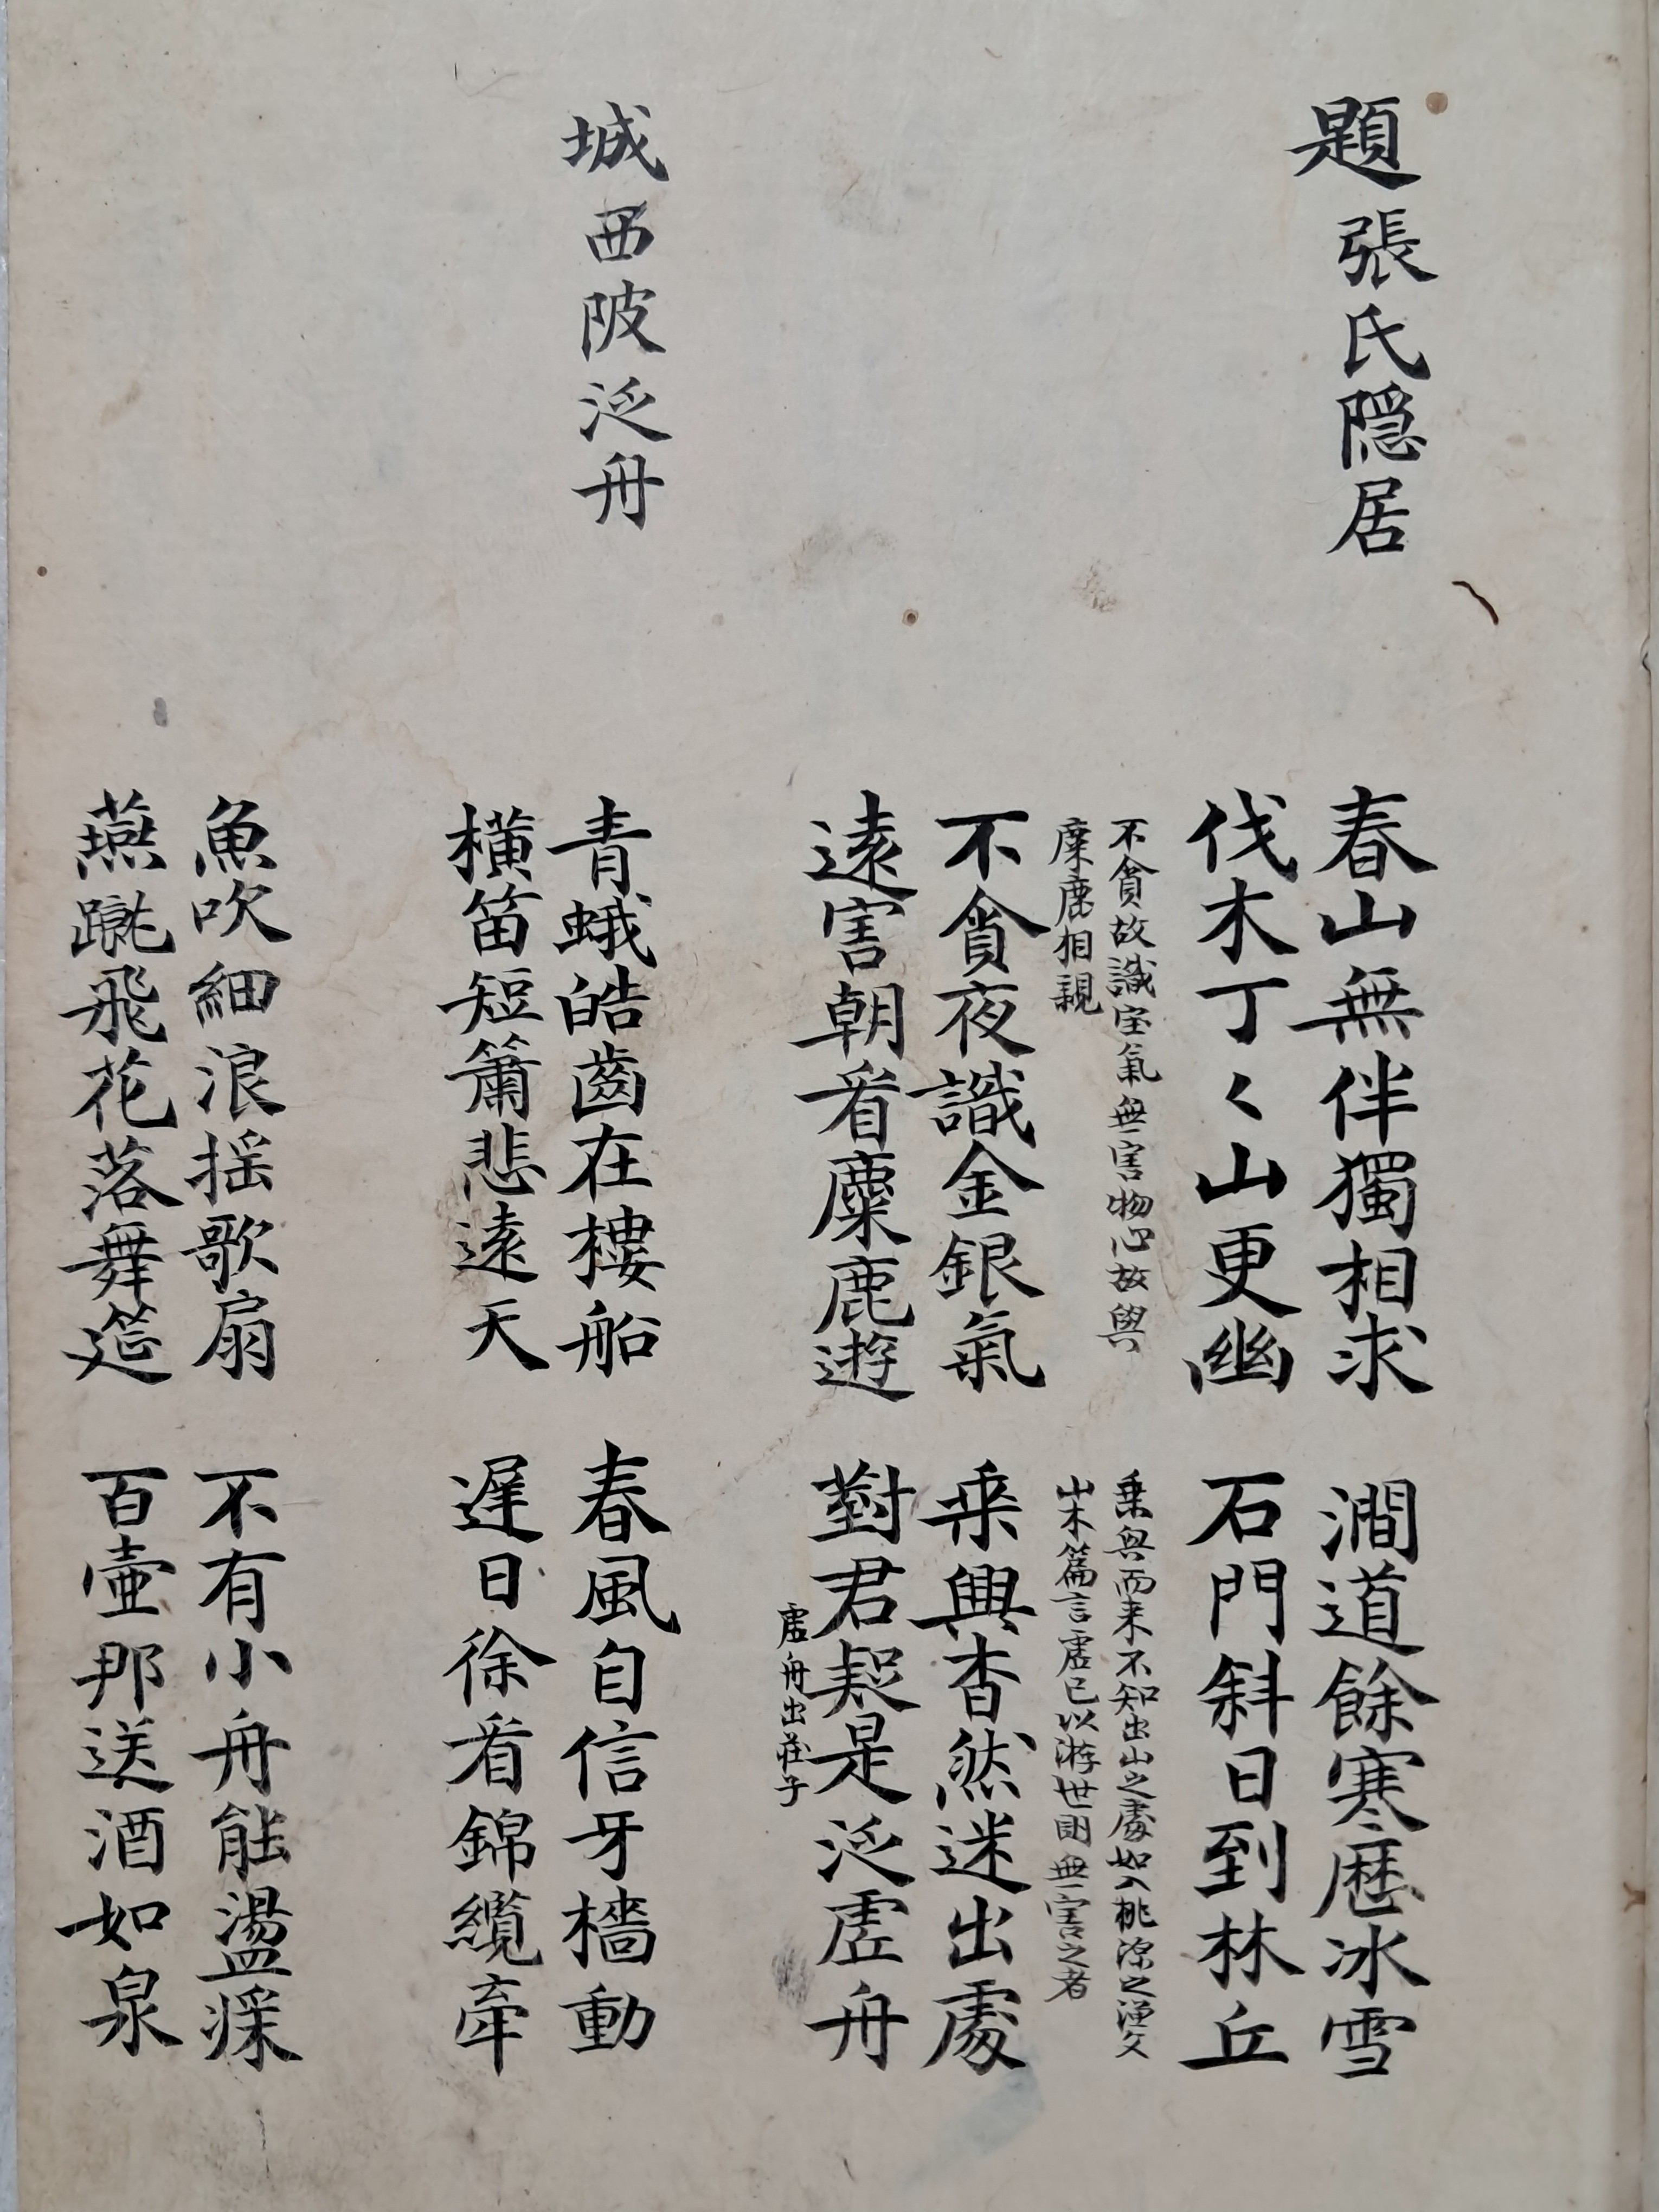 題張氏隠居
春山無伴獨相求
伐木丁々山更幽
澗道餘寒歷冰雪
石門斜日到林丘
不貪故識宝氣無害物心故與
麋鹿相親
不貪夜識金銀氣
遠害朝看麋鹿遊
乗興而来不知出山之處如入桃源之漁父
山木篇言虛已以游世固無害之者
乗興杳然迷出處
對君疑是泛虛舟
虛舟出莊子
城西陂泛舟
青蛾皓齒在樓船
橫笛短簫悲遠天
春風自信牙檣動
遲日徐看錦纜牽
魚吹細浪搖歌扇
燕蹴飛花落舞筵
不有小舟能盪槳
百壺那送酒如泉